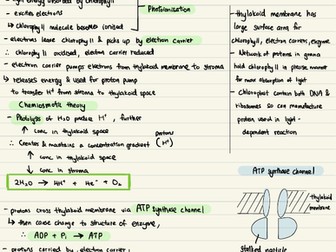 - light energy absorbed by chlorophyll
- excites electrons
Photoionisation
→ chlorophyll molecule becomes ionised
- electrons leave chlorophyll & picks up by electron carrier
∴ chlorophyll oxidised, electron carrier reduced
- electron carrier pumps electrons from thylakoid membrane to stroma
↳ releases energy & used for proton pump
to transfer H⁺ from stroma to thylakoid space
Chemiosmotic theory
- Photolysis of H₂O produce H⁺, further
↑ conc in thylakoid space
∴ Creates & maintains a concentration gradient
protons
(H⁺)
↑ conc in thylakoid space
↓ conc in stroma
2H₂O → 4H⁺ + 4e⁻ + O₂
- protons cross thylakoid membrane via ATP synthase channel
↳ then cause change to structure of enzyme,
∴ ADP + Pi → ATP
- protons carried by electron carrier,
- thylakoid membrane has
large surface area for
chlorophyll, electron carriers, enzyme
- Network of proteins in grana
hold chlorophyll in precise manner
for more absorption of light
- Chloroplast contain both DNA &
ribosomes so can manufacture
protein used in light-
dependent reaction
ATP synthase channel
thylakoid
membrane
Stalked particle